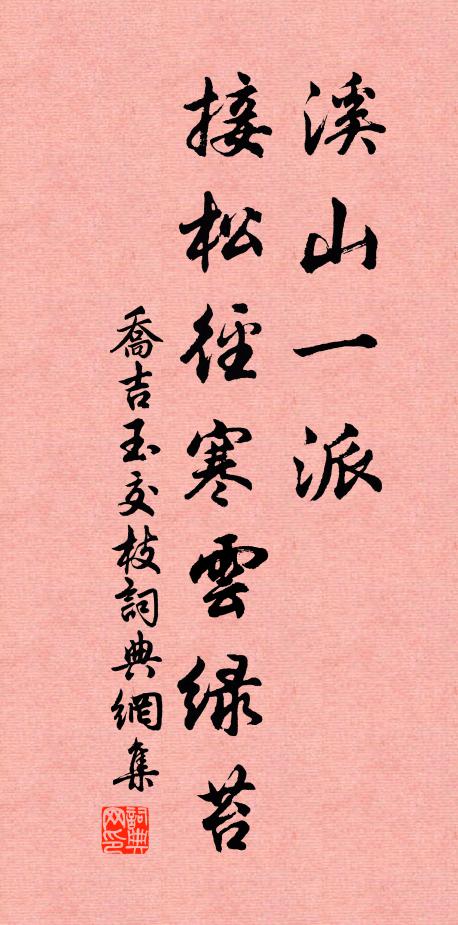 溪山一派
接松徑寒雲綠苔
喬吉玉交枝詞典網集
詞典
网印